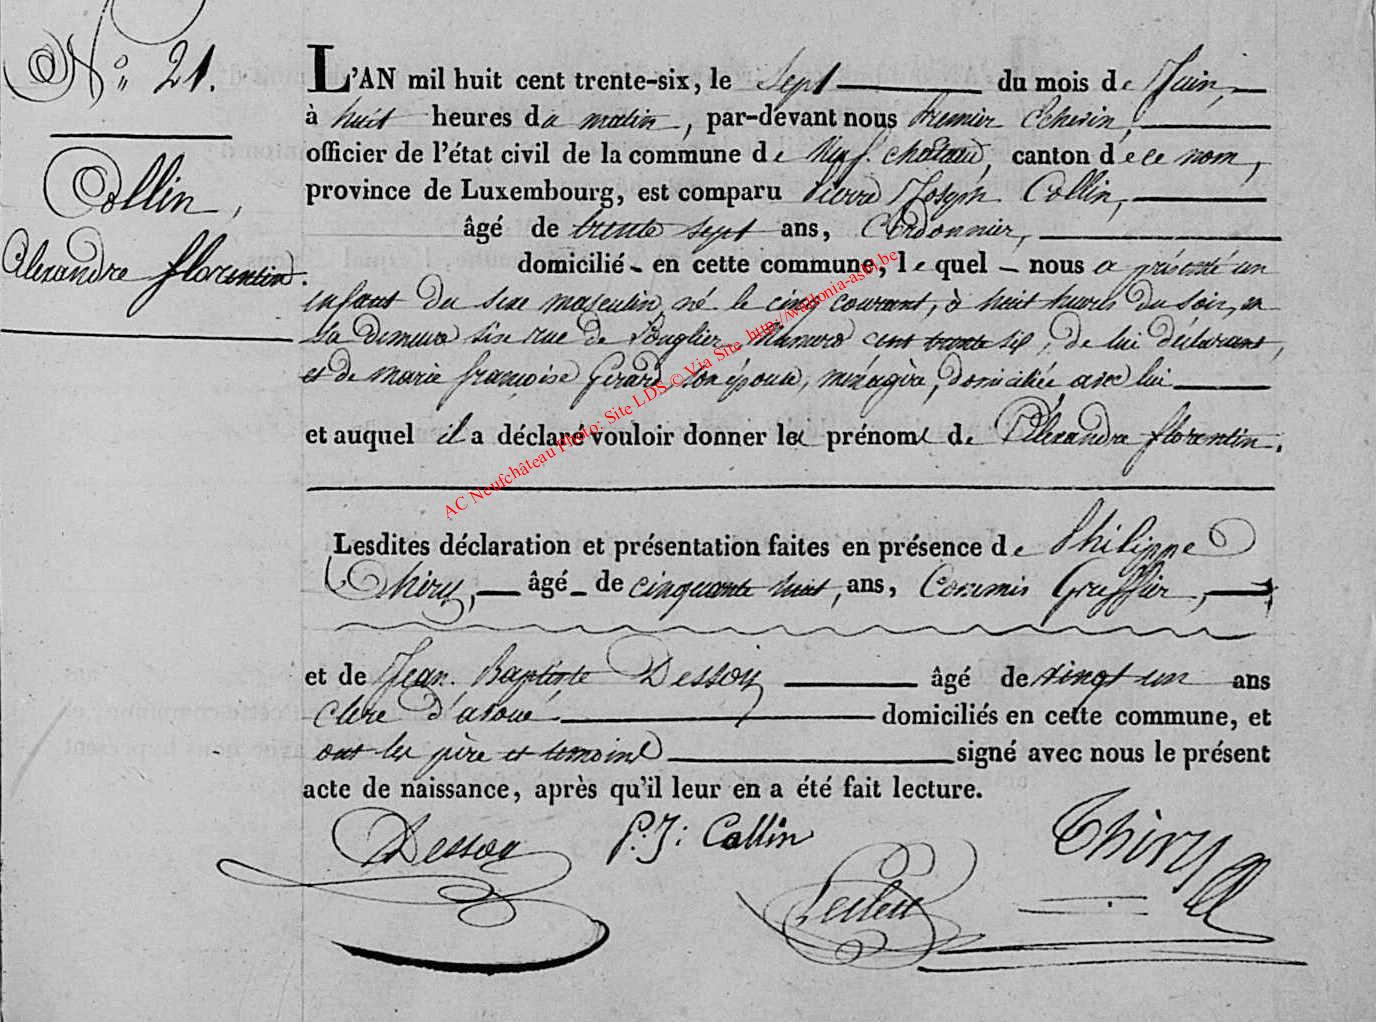 N° 21.
Collin,
Alexandre florentin.
L'AN mil huit cent trente-six, le sept du mois de Juin,
à huit heures du matin, par-devant nous premier Echevin,
officier de l'état civil de la commune de Neufchateau, canton de ce nom,
province de Luxembourg, est comparu Pierre Joseph Collin,
âgé de trente sept ans, Cordonnier,
domicilié en cette commune, lequel nous a présenté un
enfant du sexe masculin, né le cinq courant, à huit heures du soir, en
sa demeure sise rue de Numero cent trente six, de lui déclarant,
et de marie françoise Gerard son épouse, ménagère, domiciliée avec lui
et auquel il a déclaré vouloir donner les prénoms de Alexandre florentin.
Lesdites déclaration et présentation faites en présence de Philippe
Thiry, âgé de cinquante huit, ans, Commis Greffier,
et de Jean Baptiste Dessoy âgé de vingt un ans
clerc d'avoué domiciliés en cette commune, et
ont les père et temoins signé avec nous le présent
acte de naissance, après qu'il leur en a été fait lecture.
Dessoy P. J: Collin Thiry
AC Neufchâteau Photo: Site LDS © Via Site http://wallonia-asbl.be